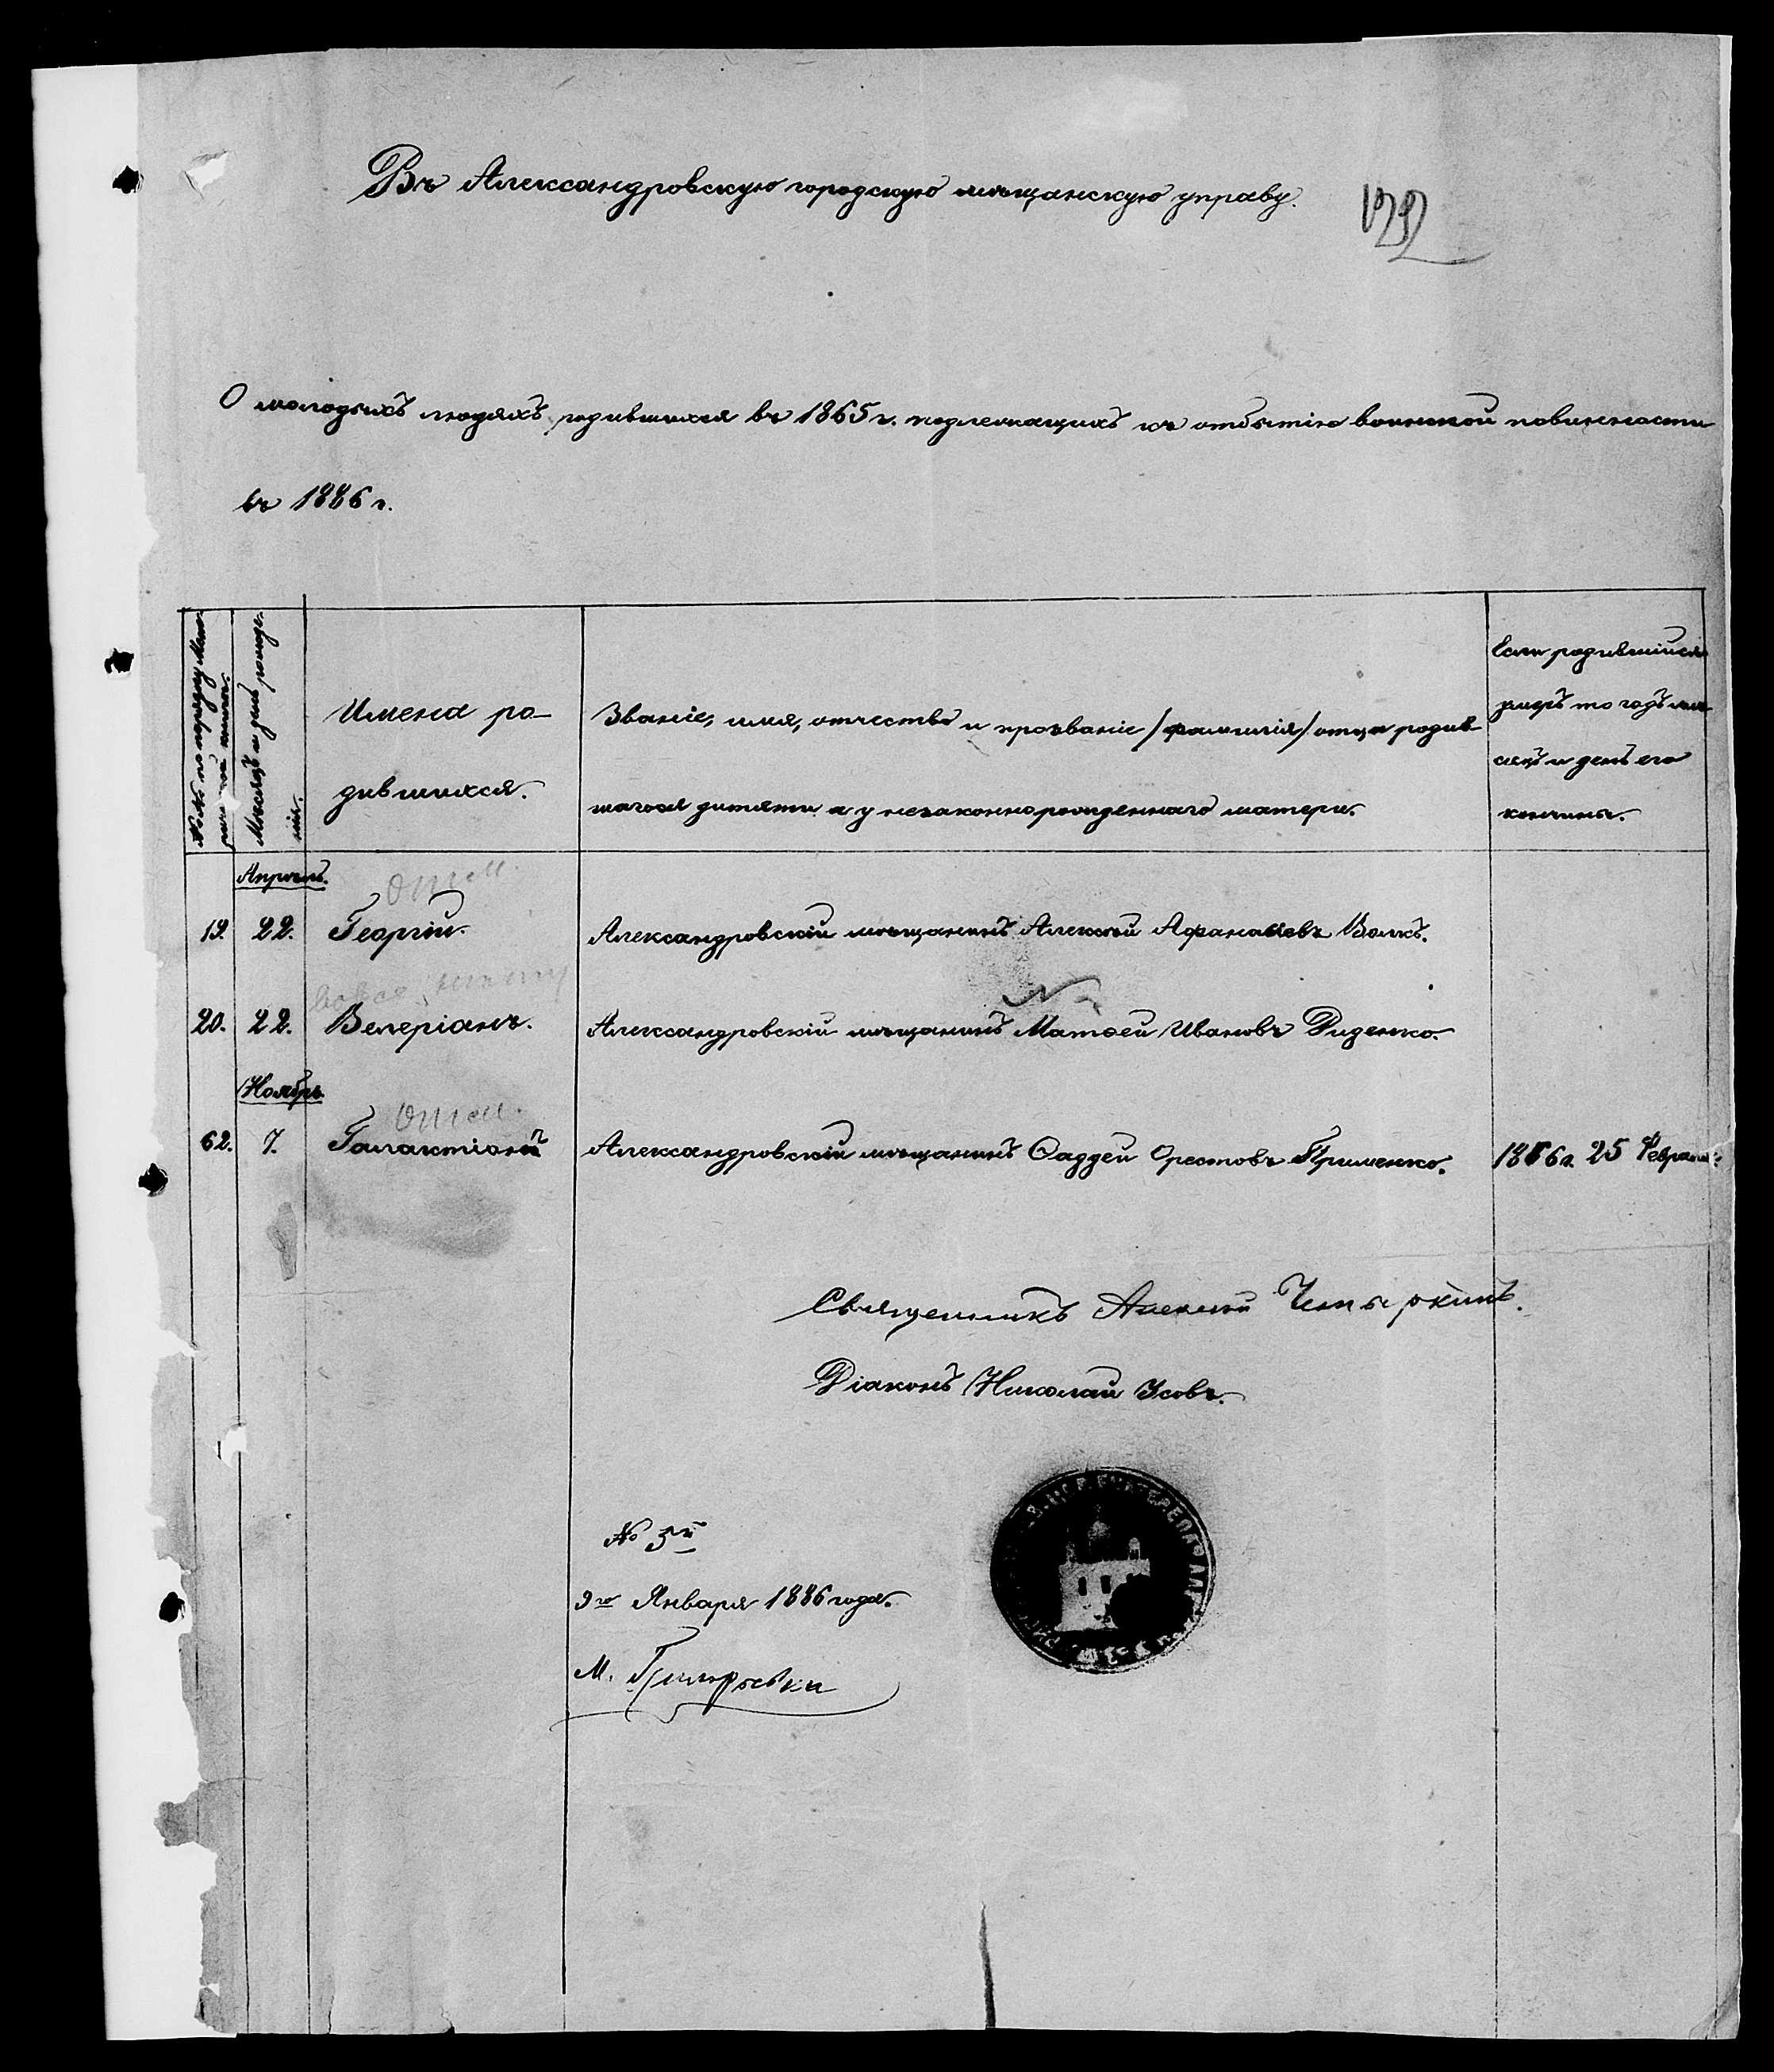 Въ Александровскую городскую мѣщанскую управу.
О молодыхъ людяхъ, родившихся въ 1865 г. подлежащихъ къ отбытію воинской повинности
въ 1886 г.
Мѣсяцъ и день рожде-
нія.
Имена ро-
дившихся.
Званіе, имя, отчество и прозваніе /фамилія/ отца родив-
шагося дитяти а у незаконнорожденнаго матери.
Если родившійся
умеръ то годъ мѣ-
сяцъ и день его
кончины.
Апрѣль.
19. 22. Георгій. Александровскій мѣщанинъ Алексѣй Афанасіевъ Волкъ.
20. 22. Велеріанъ. Александровскій мѣщанинъ Матѳей Ивановъ Диденко.
Ноябрь
62. 7. Галактіонъ Александровскій мѣщанинъ Ѳаддей Орестовъ Пришенко. 1866 г. 25 Февраля
Священникъ Алексѣй Чемыркинъ.
Діаконъ Николай Усовъ.
№ 5й
9го Января 1886 года.
М. Григорьевка